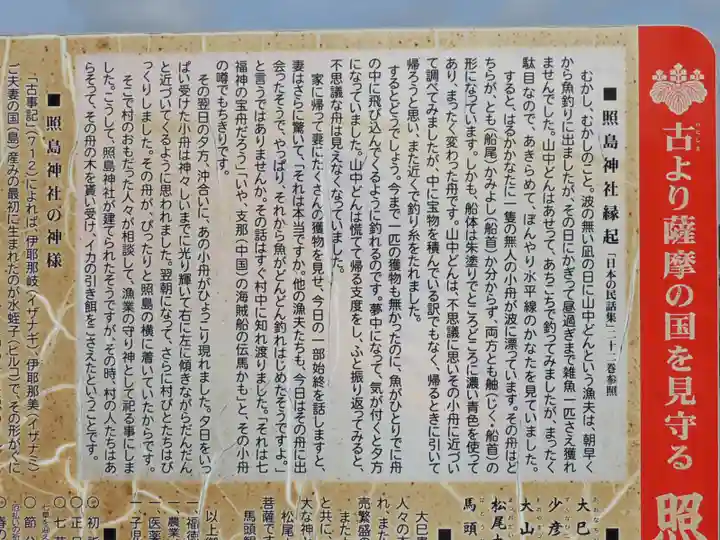 古より薩摩の国を見守る 照
いにしえ
■ 照島神社縁起 「日本の民話集」二十二巻参照
むかし、むかしのこと。波の無い凪の日に山中どんという漁師は、朝早く
から魚釣りに出ましたが、その日にかぎって昼過ぎまで雑魚一匹さえ獲れ
ませんでした。山中どんはあせって、あちこちで釣ってみましたが、まったく
駄目なので、あきらめて、ぼんやり水平線のかなたを見ていました。
すると、はるかかなたに一隻の無人の小舟が波に漂っています。その舟はど
ちらが、とも(船尾)かみよし(船首)か分からず、両方とも舳(じく・船首)の
形になっています。しかも、船体は朱塗りでところどころに濃い青色を使って
あり、まったく変わった舟です。山中どんは、不思議に思いその小舟に近づい
て調べてみましたが、中に宝物を積んでいる訳でもなく、帰るときに引いて
帰ろうと思い、また近くで釣り糸をたれました。
するとどうでしょう。今まで一匹の獲物も無かったのに、魚がひとりでに舟
の中に飛び込んでくるように釣れるのです。夢中になって、気が付くと夕方
になっていました。山中どんは慌てて帰る支度をし、ふと振り返ってみると、
不思議な舟は見えなくなっていました。
家に帰って妻にたくさんの獲物を見せ、今日の一部始終を話しますと、
妻はさらに驚いて、「それは本当ですか。他の漁夫たちも、今日はその舟に出
会ったそうで、やっぱり、それから魚がどんどん釣れはじめたそうですよ。」
と言うではありませんか。その話はすぐ村中に知れ渡りました。「それは七
福神の宝舟だろう」「いや、支那(中国)の海賊船の伝馬かも」と、その小舟
の噂でもちきりです。
その翌日の夕方、沖合いに、あの小舟がひょこり現れました。夕日をいっ
ぱい受けた小舟は神々しいまでに光り輝いて右に左に傾きながらだんだん
と近づいてくるように思われました。翌朝になって、さらに村びとたちはび
っくりしました。その舟が、ぴったりと照島の横に着いていたからです。
そこで村のおもだった人々が相談して、漁業の守り神として祀る事にしま
した。こうして、照島神社が建てられたそうですが、その時、村の人たちはあ
らそって、その舟の木を貰い受け、イカの引き餌をこさえたということです。
■ 照島神社の神様
「古事記」(712)によれば、伊耶那岐(イザナギ)、伊耶那美(イザナミ)
ご夫妻の国(島)産みの最初に生まれたのが水蛭子(ヒルコ)で、その形がくに
大巳
少彦
大山
松尾大
馬頭
大巳貴
人々の
れ、また
売繁盛
また
と共に、
大な神
松尾
馬頭観
菩薩で
以上
一、福徳
一、農業
一、医薬
一、子児
○初
○正
○七
○節
○春の